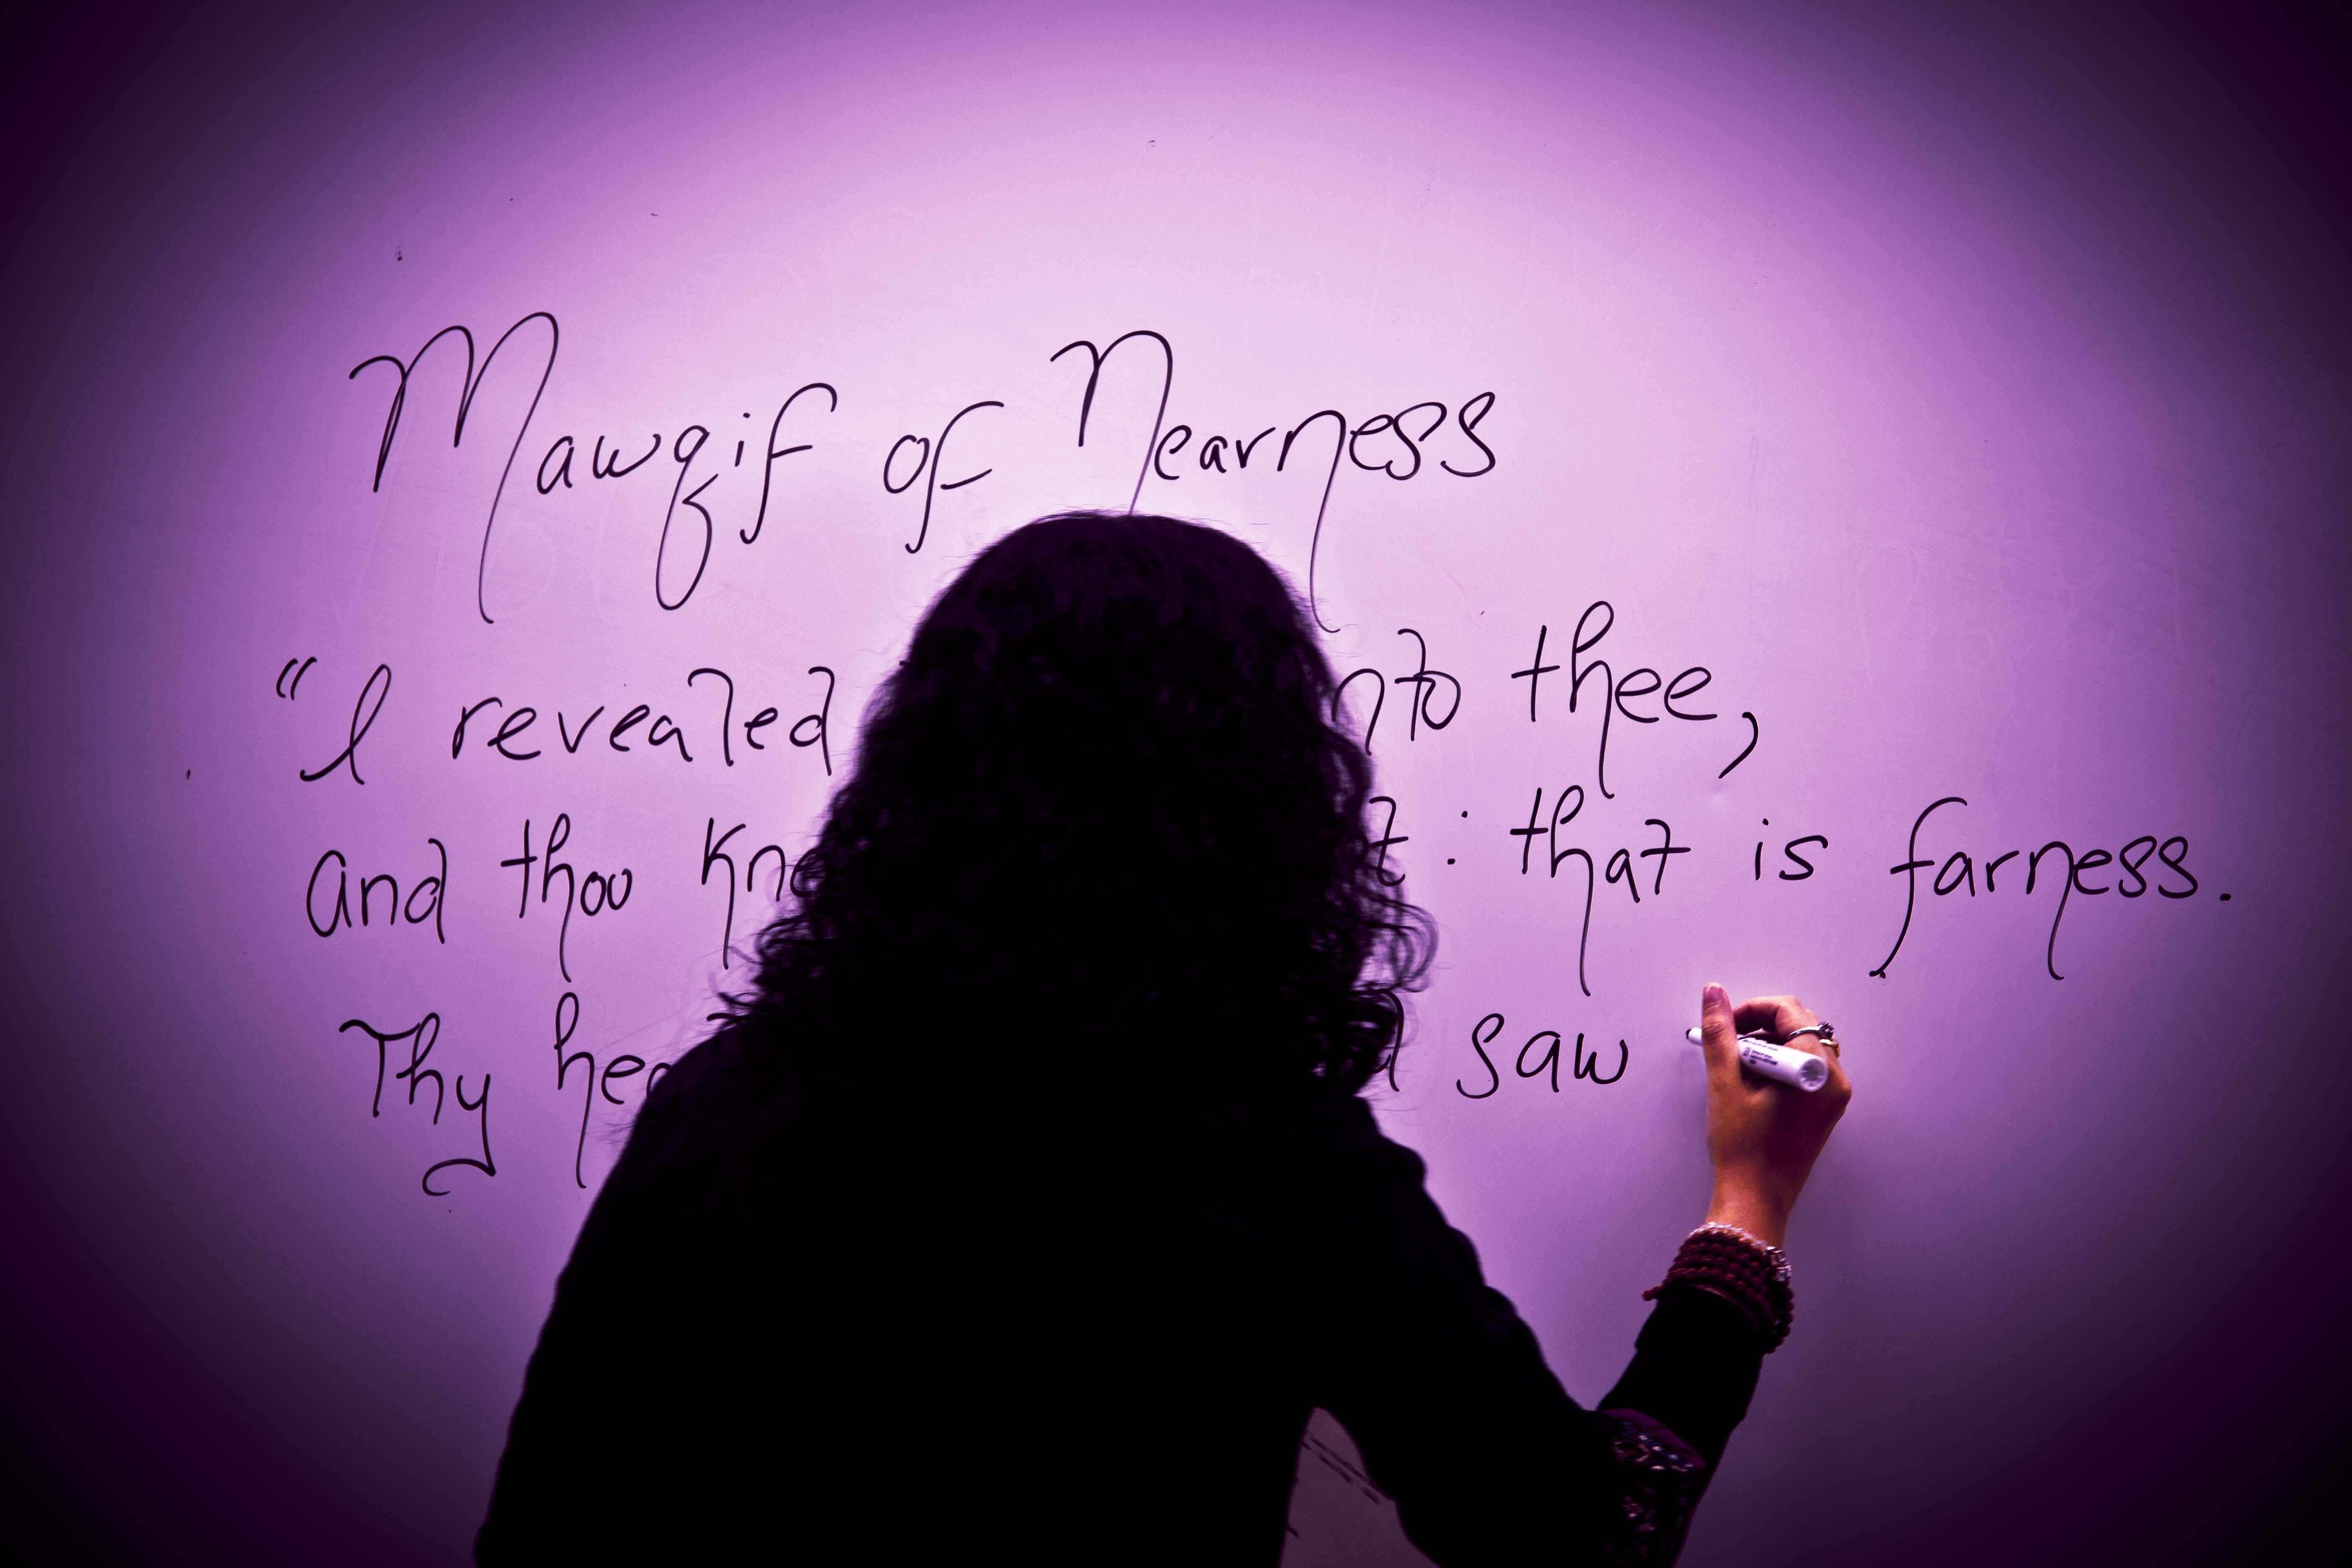 Mawqif of Nearness
"I revealed thee,
and thou : that is farness.
Thy saw